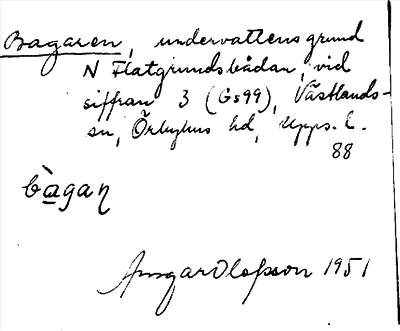 Bagaren, undervattensgrund
N Flatgrundsbådan, vid
siffran 3 (Gs99), Västlands-
sn, Örbyhus hd, Upps. l.
88
bàgaη
Ansgar Olofsson 1951